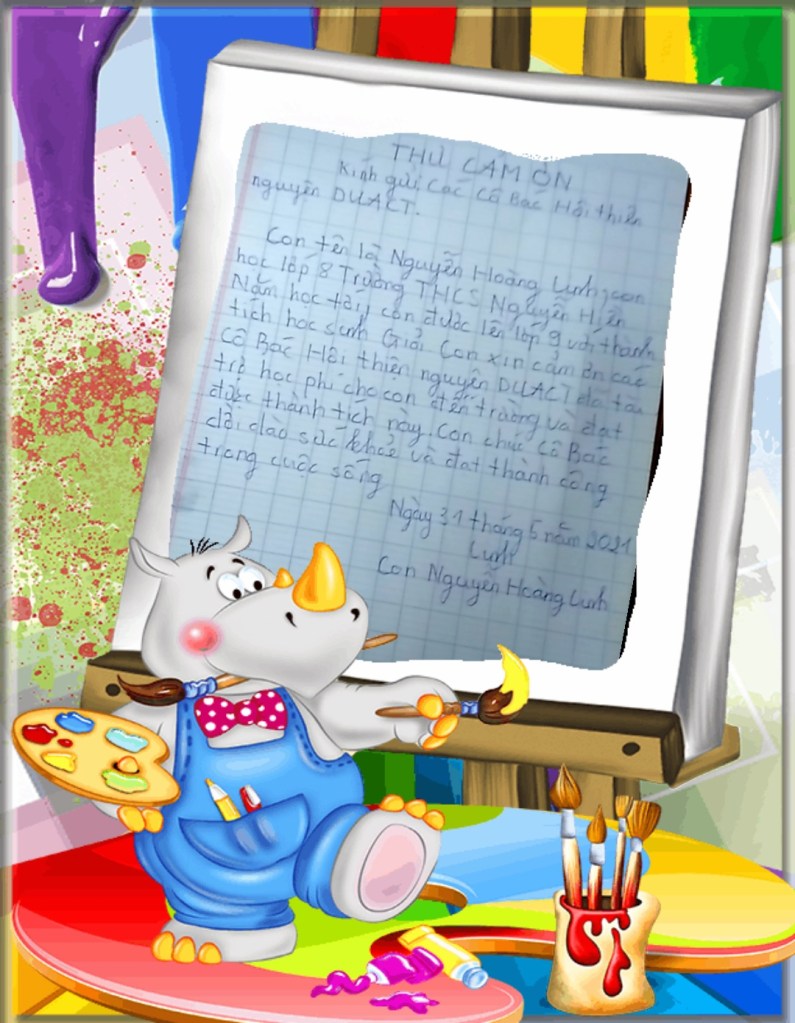 THƯ CẢM ƠN
Kính gửi Các Cô Bác Hội thiện
nguyện DULACT.
Con tên là Nguyễn Hoàng Linh, con
học lớp 8 Trường THCS Nguyễn Hiền
Năm học tới, con được lên lớp 9 với thành
tích học sinh Giỏi. Con xin cảm ơn các
Cô Bác Hội thiện nguyện DULACT đã tài
trợ học phí cho con đến trường và đạt
được thành tích này. Con chúc Cô Bác
dồi dào sức khoẻ và đạt thành công
trong cuộc sống
Ngày 31 tháng 5 năm 2021
Linh
Con Nguyễn Hoàng Linh